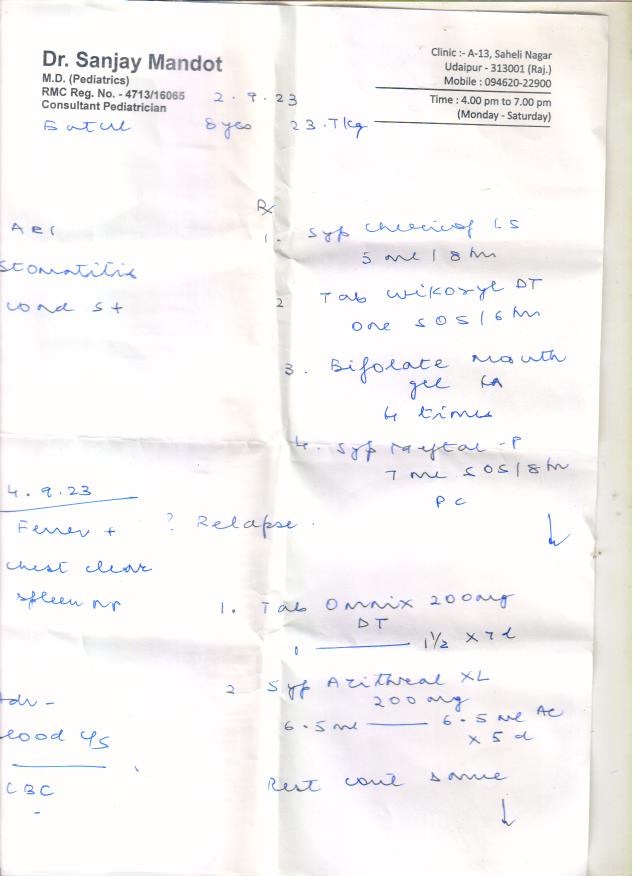 Dr. Sanjay Mandot
M.D. (Pediatrics)
RMC Reg. No. - 4713/16065
Consultant Pediatrician
Clinic :- A-13, Saheli Nagar
Udaipur - 313001 (Raj.)
Mobile : 094620-22900
Time : 4.00 pm to 7.00 pm
(Monday - Saturday)
2.9.23
Batul 8 yrs 23.7kg
Rx
stomatitis
1. Syp LS
5 ml / 8 hr
2 Tab Wikoryl DT
one SOS / 6 hr
3. Bifolate mouth
gel LA
4 times
4. Syp Meftal-P
7 ml SOS / 8 hr
PC
4.9.23
Fever + ? Relapse.
chest clear
spleen NP
1. Tab Omnix 200mg
DT
1 1½ x 7d
2 Syp Azithral XL
200 mg
6.5 ml 6.5 ml AC
x 5 d
Adv-
blood c/s
CBC
Rest cont same